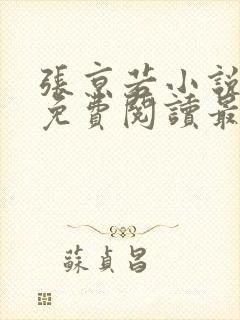 張京若小說
免費閱讀最
蘇貞昌